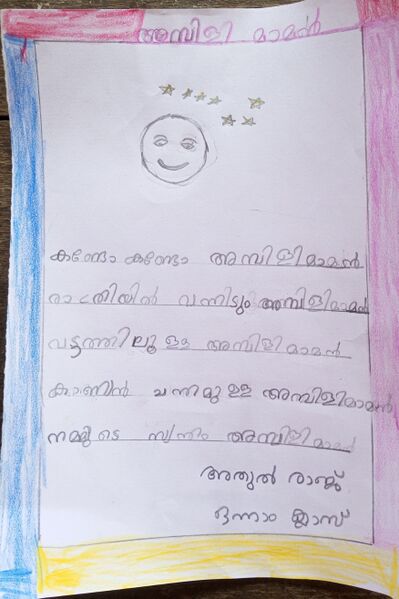 അമ്പിളി മാമൻ
കണ്ടോ കണ്ടോ അമ്പിളിമാമൻ
രാത്രിയിൽ വന്നിടും അമ്പിളിമാമൻ
വട്ടത്തിലുള്ള അമ്പിളിമാമൻ
കാണിൻ ചന്തമുള്ള അമ്പിളിമാമൻ
നമ്മുടെ സ്വന്തം അമ്പിളിമാമൻ
അതുൽ രാജ്
ഒന്നാം ക്ലാസ്